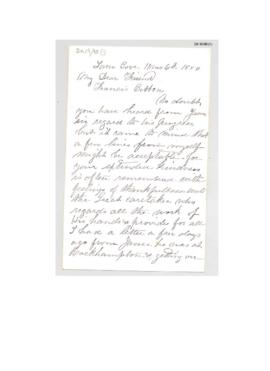 Cove Mar 6th 18
My Dear Friend
Francis Cotton
No doubt
you have heard from
regard to his progress
but it came to mind that
a few lines from myself
might be acceptable for
your extended kindness
is often remembered with
feelings of thankfulness
the Great caretaker who
regards all the work of
his hands & provides for all
I had a letter a few days
ago from James he was at
Rockhampton & getting on